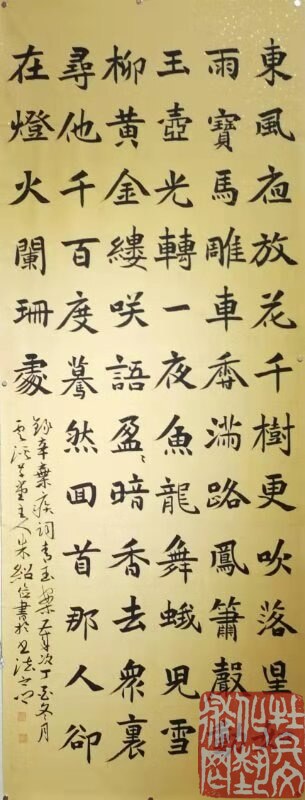 東風夜放花千樹更吹落星
雨寶馬雕車香滿路鳳簫聲
玉壺光轉一夜魚龍舞蛾兒雪
柳黃金縷咲語盈〻暗香去眾裏
尋他千百度驀然回首那人卻
在燈火闌珊處
錄辛棄疾詞青玉案歲次丁酉冬月
堂主人朱紹信書於